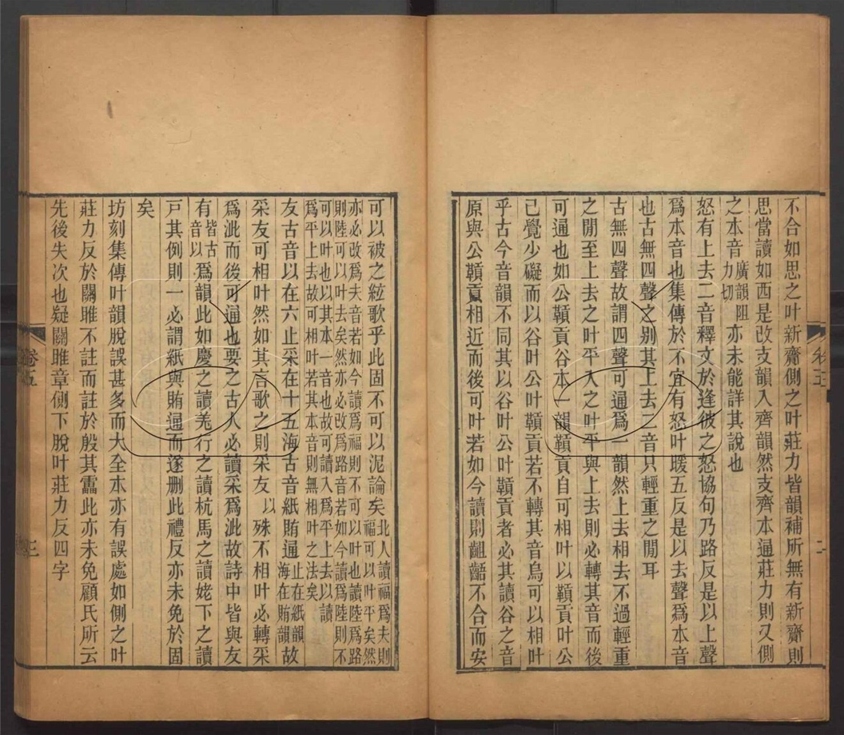 不合如思之叶新齎側之叶莊力皆韻補所無有新齎則
思當讀如西是改支韻入齊韻然支齊本通莊力則又側
之本音廣韻阻力切亦未能詳其說也
怒有上去二音釋文於逢彼之怒協句乃路反是以上聲
爲本音也集傳於不宜有怒叶暖五反是以去聲爲本音
也古無四聲之別其上去二音只輕重之閒耳
古無四聲故謂四聲可通爲一韻然上去相去不過輕重
之閒至上去之叶平入之叶平與上去則必轉其音而後
可通也如公顭貢谷本一韻顭貢自可相叶以顭貢叶公
已覺少礙而以谷叶公叶顭貢若不轉其音烏可以相叶
乎古今音韻不同其以谷叶公叶顭貢者必其讀谷之音
原與公顭貢相近而後可叶若如今讀則齟齬不合而安
可以被之絃歌乎此固不可以泥論矣北人讀福爲夫則
福可以叶平矣然
亦必改爲夫音若如今讀爲福則不可以叶也讀陸爲路
則陸可以叶去矣然亦必改爲路音若如今讀爲陸則不
可以叶也以其本一音也故可讀入爲平上去以讀
爲平上去故可相叶若其本音則無相叶之法矣
友古音以在六止采在十五海古音紙賄通止在紙韻
海在賄韻故
采友可相叶然如其言歌之則采友以殊不相叶必轉采
爲泚而後可通也要之古人必讀采爲泚故詩中皆與友
有皆古音以爲韻此如慶之讀羌行之讀杭馬之讀姥下之讀
戸其例則一必謂紙與賄通而遂删此禮反亦未免於固
矣
坊刻集傳叶韻脫誤甚多而大全本亦有誤處如側之叶
莊力反於關雎不註而註於殷其靁此亦未免顧氏所云
先後失次也疑關雎章側下脫叶莊力反四字
卷五
二
卷五
三